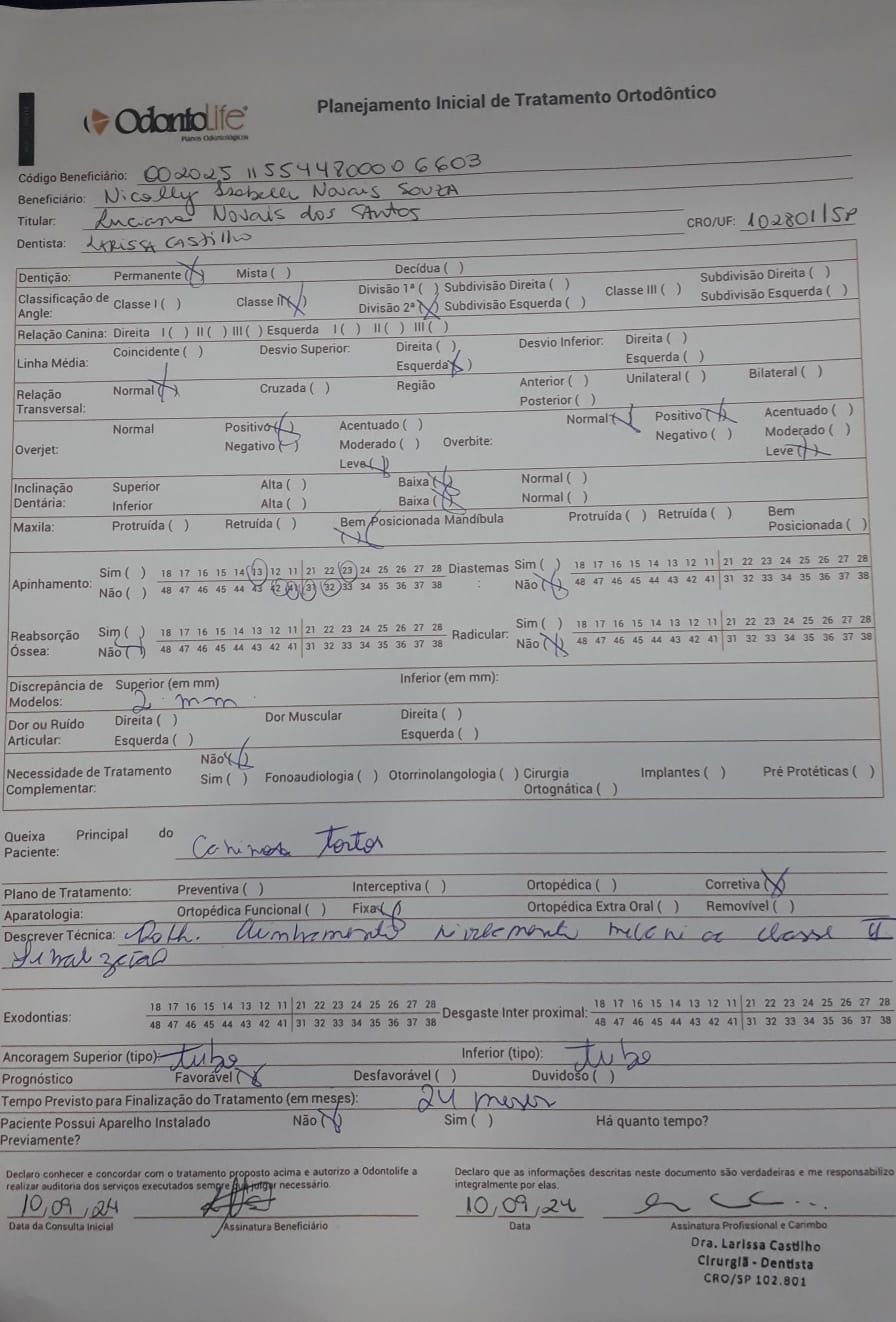 OdontoLife
Planos Odontológicos
Planejamento Inicial de Tratamento Ortodôntico
Código Beneficiário: 002025 11554480000 6603
Beneficiário: Nicolly Isabelli Novais SOUZA
Titular: Luciana Novais dos Santos
CRO/UF: 102801/SP
Dentista: LARISSA CASTILHO
Dentição: Permanente (X) Mista ( ) Decídua ( )
Classificação de Angle: Classe I ( ) Classe II (X) Divisão 1ª ( ) Subdivisão Direita ( ) Classe III ( ) Subdivisão Direita ( )
Divisão 2ª (X) Subdivisão Esquerda ( ) Subdivisão Esquerda ( )
Relação Canina: Direita I ( ) II ( ) III ( ) Esquerda I ( ) II ( ) III ( )
Linha Média: Coincidente ( ) Desvio Superior: Direita ( ) Desvio Inferior: Direita ( )
Esquerda (X) Esquerda ( )
Relação Transversal: Normal (X) Cruzada ( ) Região Anterior ( ) Unilateral ( ) Bilateral ( )
Posterior ( )
Overjet: Normal Positivo (X) Acentuado ( ) Overbite: Normal (X) Positivo (X) Acentuado ( )
Negativo ( ) Moderado ( ) Negativo ( ) Moderado ( )
Leve (X) Leve (X)
Inclinação Dentária: Superior Alta ( ) Baixa (X) Normal ( )
Inferior Alta ( ) Baixa (X) Normal ( )
Maxila: Protruída ( ) Retruída ( ) Bem Posicionada (X) Mandíbula Protruída ( ) Retruída ( ) Bem Posicionada ( )
Apinhamento: Sim ( ) 18 17 16 15 14 13 12 11 21 22 23 24 25 26 27 28 Diastemas: Sim ( ) 18 17 16 15 14 13 12 11 21 22 23 24 25 26 27 28
Não ( ) 48 47 46 45 44 43 42 41 31 32 33 34 35 36 37 38 Não (X) 48 47 46 45 44 43 42 41 31 32 33 34 35 36 37 38
Reabsorção Óssea: Sim ( ) 18 17 16 15 14 13 12 11 21 22 23 24 25 26 27 28 Radicular: Sim ( ) 18 17 16 15 14 13 12 11 21 22 23 24 25 26 27 28
Não (X) 48 47 46 45 44 43 42 41 31 32 33 34 35 36 37 38 Não (X) 48 47 46 45 44 43 42 41 31 32 33 34 35 36 37 38
Discrepância de Modelos: Superior (em mm) 2 mm Inferior (em mm):
Dor ou Ruído Articular: Direita ( ) Dor Muscular Direita ( )
Esquerda ( ) Esquerda ( )
Necessidade de Tratamento Complementar: Não (X)
Sim ( ) Fonoaudiologia ( ) Otorrinolangologia ( ) Cirurgia Ortognática ( ) Implantes ( ) Pré Protéticas ( )
Queixa Principal do Paciente: Caninos Tortos
Plano de Tratamento: Preventiva ( ) Interceptiva ( ) Ortopédica ( ) Corretiva (X)
Aparatologia: Ortopédica Funcional ( ) Fixa (X) Ortopédica Extra Oral ( ) Removível ( )
Descrever Técnica: Roth. Alinhamento nivelamento mecanica classe II
finalização
Exodontias: 18 17 16 15 14 13 12 11 21 22 23 24 25 26 27 28 Desgaste Inter proximal: 18 17 16 15 14 13 12 11 21 22 23 24 25 26 27 28
48 47 46 45 44 43 42 41 31 32 33 34 35 36 37 38 48 47 46 45 44 43 42 41 31 32 33 34 35 36 37 38
Ancoragem Superior (tipo): tubo Inferior (tipo): tubo
Prognóstico Favorável (X) Desfavorável ( ) Duvidoso ( )
Tempo Previsto para Finalização do Tratamento (em meses): 24 meses
Paciente Possui Aparelho Instalado Previamente? Não (X) Sim ( ) Há quanto tempo?
Declaro conhecer e concordar com o tratamento proposto acima e autorizo a Odontolife a
realizar auditoria dos serviços executados sempre que julgar necessário.
Declaro que as informações descritas neste documento são verdadeiras e me responsabilizo
integralmente por elas.
10,09,24
Data da Consulta Inicial Assinatura Beneficiário
10,09,24
Data Assinatura Profissional e Carimbo
Dra. Larissa Castilho
Cirurgiã - Dentista
CRO/SP 102.801